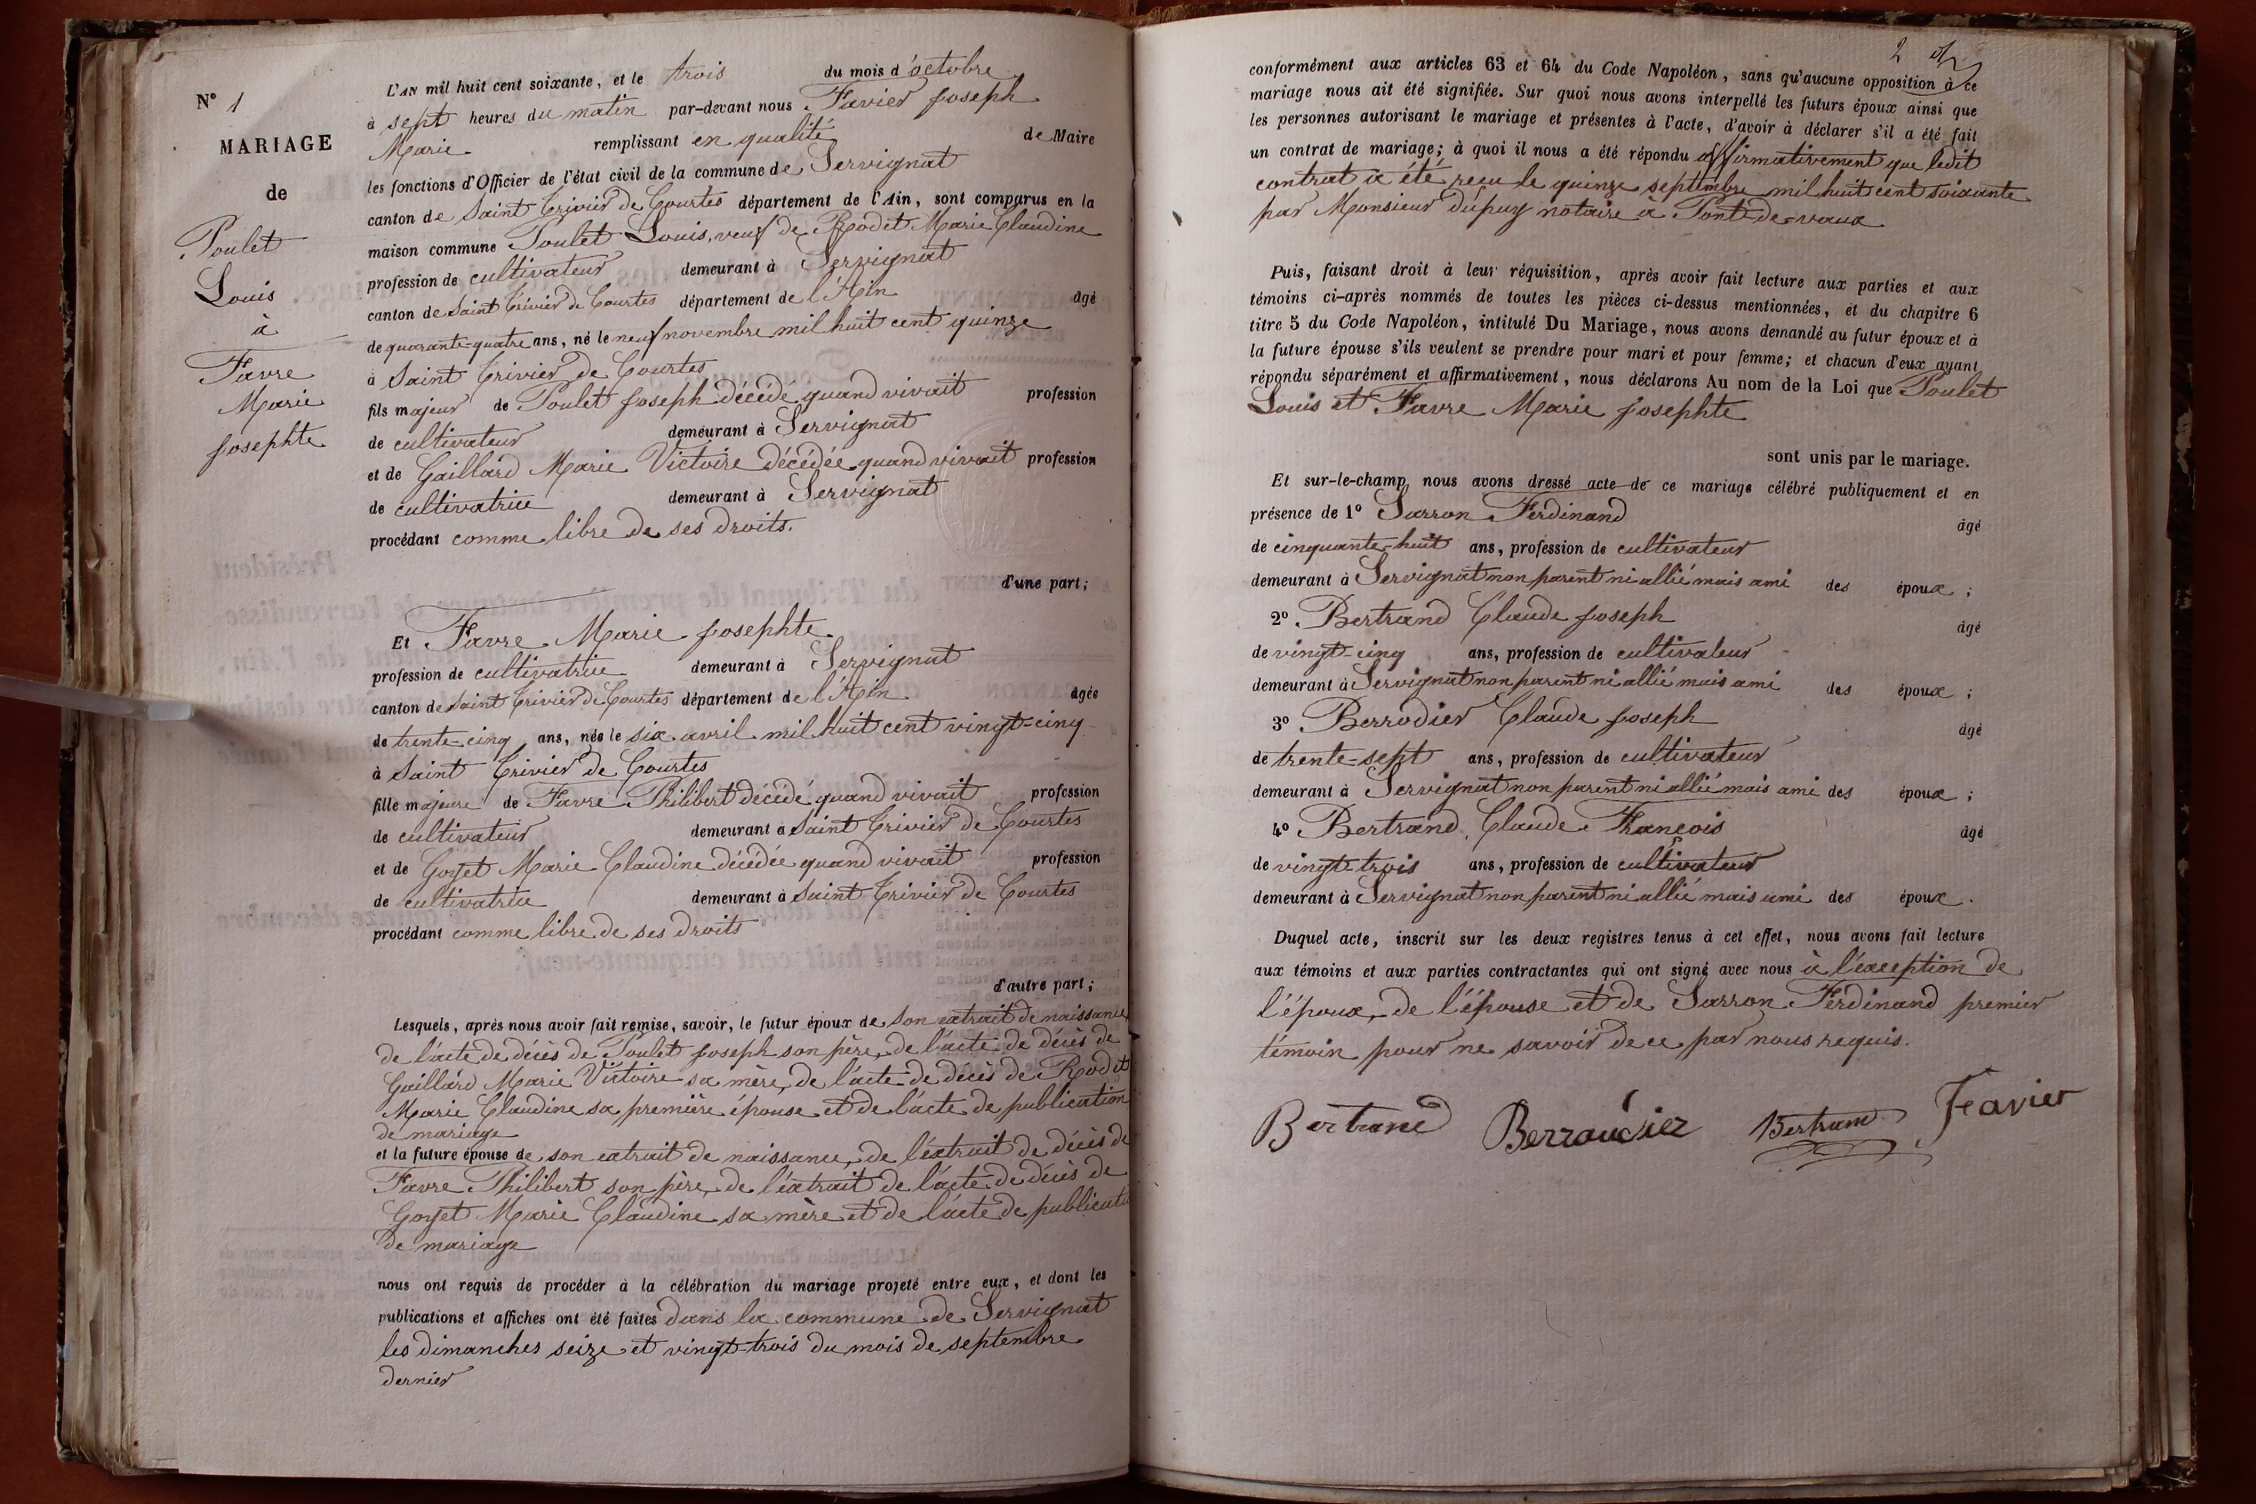 N° 1
MARIAGE
de
Poulet
Louis
à
Favre
Marie
Josephte
L'AN mil huit cent soixante, et le trois du mois d'octobre
à sept heures du matin par-devant nous Favier Joseph
Marie remplissant en qualité de Maire
les fonctions d'Officier de l'état civil de la commune de Servignat
canton de Saint Trivier de Courtes département de l'Ain, sont comparus en la
maison commune Poulet Louis, veuf de Rodet Marie Claudine
profession de cultivateur demeurant à Servignat
canton de Saint Trivier de Courtes département de l'Ain âgé
de quarante-quatre ans, né le neuf novembre mil huit cent quinze
à Saint Trivier de Courtes
fils majeur de Poulet Joseph décédé quand vivait profession
de cultivateur demeurant à Servignat
et de Gaillard Marie Victoire décédée quand vivait profession
de cultivatrice demeurant à Servignat
procédant comme libre de ses droits.
d'une part;
Et Favre Marie Josephte
profession de cultivatrice demeurant à Servignat
canton de Saint Trivier de Courtes département de l'Ain âgée
de trente cinq ans, née le six avril mil huit cent vingt-cinq
à Saint Trivier de Courtes
fille majeure de Favre Philibert décédé quand vivait profession
de cultivateur demeurant à Saint Trivier de Courtes
et de Goyet Marie Claudine décédée quand vivait profession
de cultivatrice demeurant à Saint Trivier de Courtes
procédant comme libre de ses droits
d'autre part;
Lesquels, après nous avoir fait remise, savoir, le futur époux de son extrait de naissance
de l'acte de décès de Poulet Joseph son père, de l'acte de décès de
Gaillard Marie Victoire sa mère, de l'acte de décès de Rodet
Marie Claudine sa première épouse et de l'acte de publication
de mariage
et la future épouse de son extrait de naissance, de l'extrait de décès de
Favre Philibert son père, de l'extrait de l'acte de décès de
Goyet Marie Claudine sa mère et de l'acte de publicati
de mariage
nous ont requis de procéder à la célébration du mariage projeté entre eux, et dont les
publications et affiches ont été faites dans la commune de Servignat
les dimanches seize et vingt-trois du mois de septembre
dernier
2
conformément aux articles 63 et 64 du Code Napoléon, sans qu'aucune opposition à ce
mariage nous ait été signifiée. Sur quoi nous avons interpellé les futurs époux ainsi que
les personnes autorisant le mariage et présentes à l'acte, d'avoir à déclarer s'il a été fait
un contrat de mariage; à quoi il nous a été répondu affirmativement que ledit
contrat a été reçu le quinze septembre mil huit cent soixante
par Monsieur Dupuy notaire à Pont-de-vaux
Puis, faisant droit à leur réquisition, après avoir fait lecture aux parties et aux
témoins ci-après nommés de toutes les pièces ci-dessus mentionnées, et du chapitre 6
titre 5 du Code Napoléon, intitulé Du Mariage, nous avons demandé au futur époux et à
la future épouse s'ils veulent se prendre pour mari et pour femme; et chacun d'eux ayant
répondu séparément et affirmativement, nous déclarons Au nom de la Loi que Poulet
Louis et Favre Marie Josephte
sont unis par le mariage.
Et sur-le-champ nous avons dressé acte de ce mariage célébré publiquement et en
présence de 1° Sarron Ferdinand âgé
de cinquante-huit ans, profession de cultivateur
demeurant à Servignat non parent ni allié mais ami des époux;
2° Bertrand Claude Joseph âgé
de vingt-cinq ans, profession de cultivateur
demeurant à Servignat non parent ni allié mais ami des époux;
3° Berrodier Claude Joseph âgé
de trente-sept ans, profession de cultivateur
demeurant à Servignat non parent ni allié mais ami des époux;
4° Bertrand Claude François âgé
de vingt-trois ans, profession de cultivateur
demeurant à Servignat non parent ni allié mais ami des époux.
Duquel acte, inscrit sur les deux registres tenus à cet effet, nous avons fait lecture
aux témoins et aux parties contractantes qui ont signé avec nous à l'exception de
l'époux, de l'épouse et de Sarron Ferdinand premier
témoin pour ne savoir de ce par nous requis.
Bertrand Berraudier Bertrand Feavier